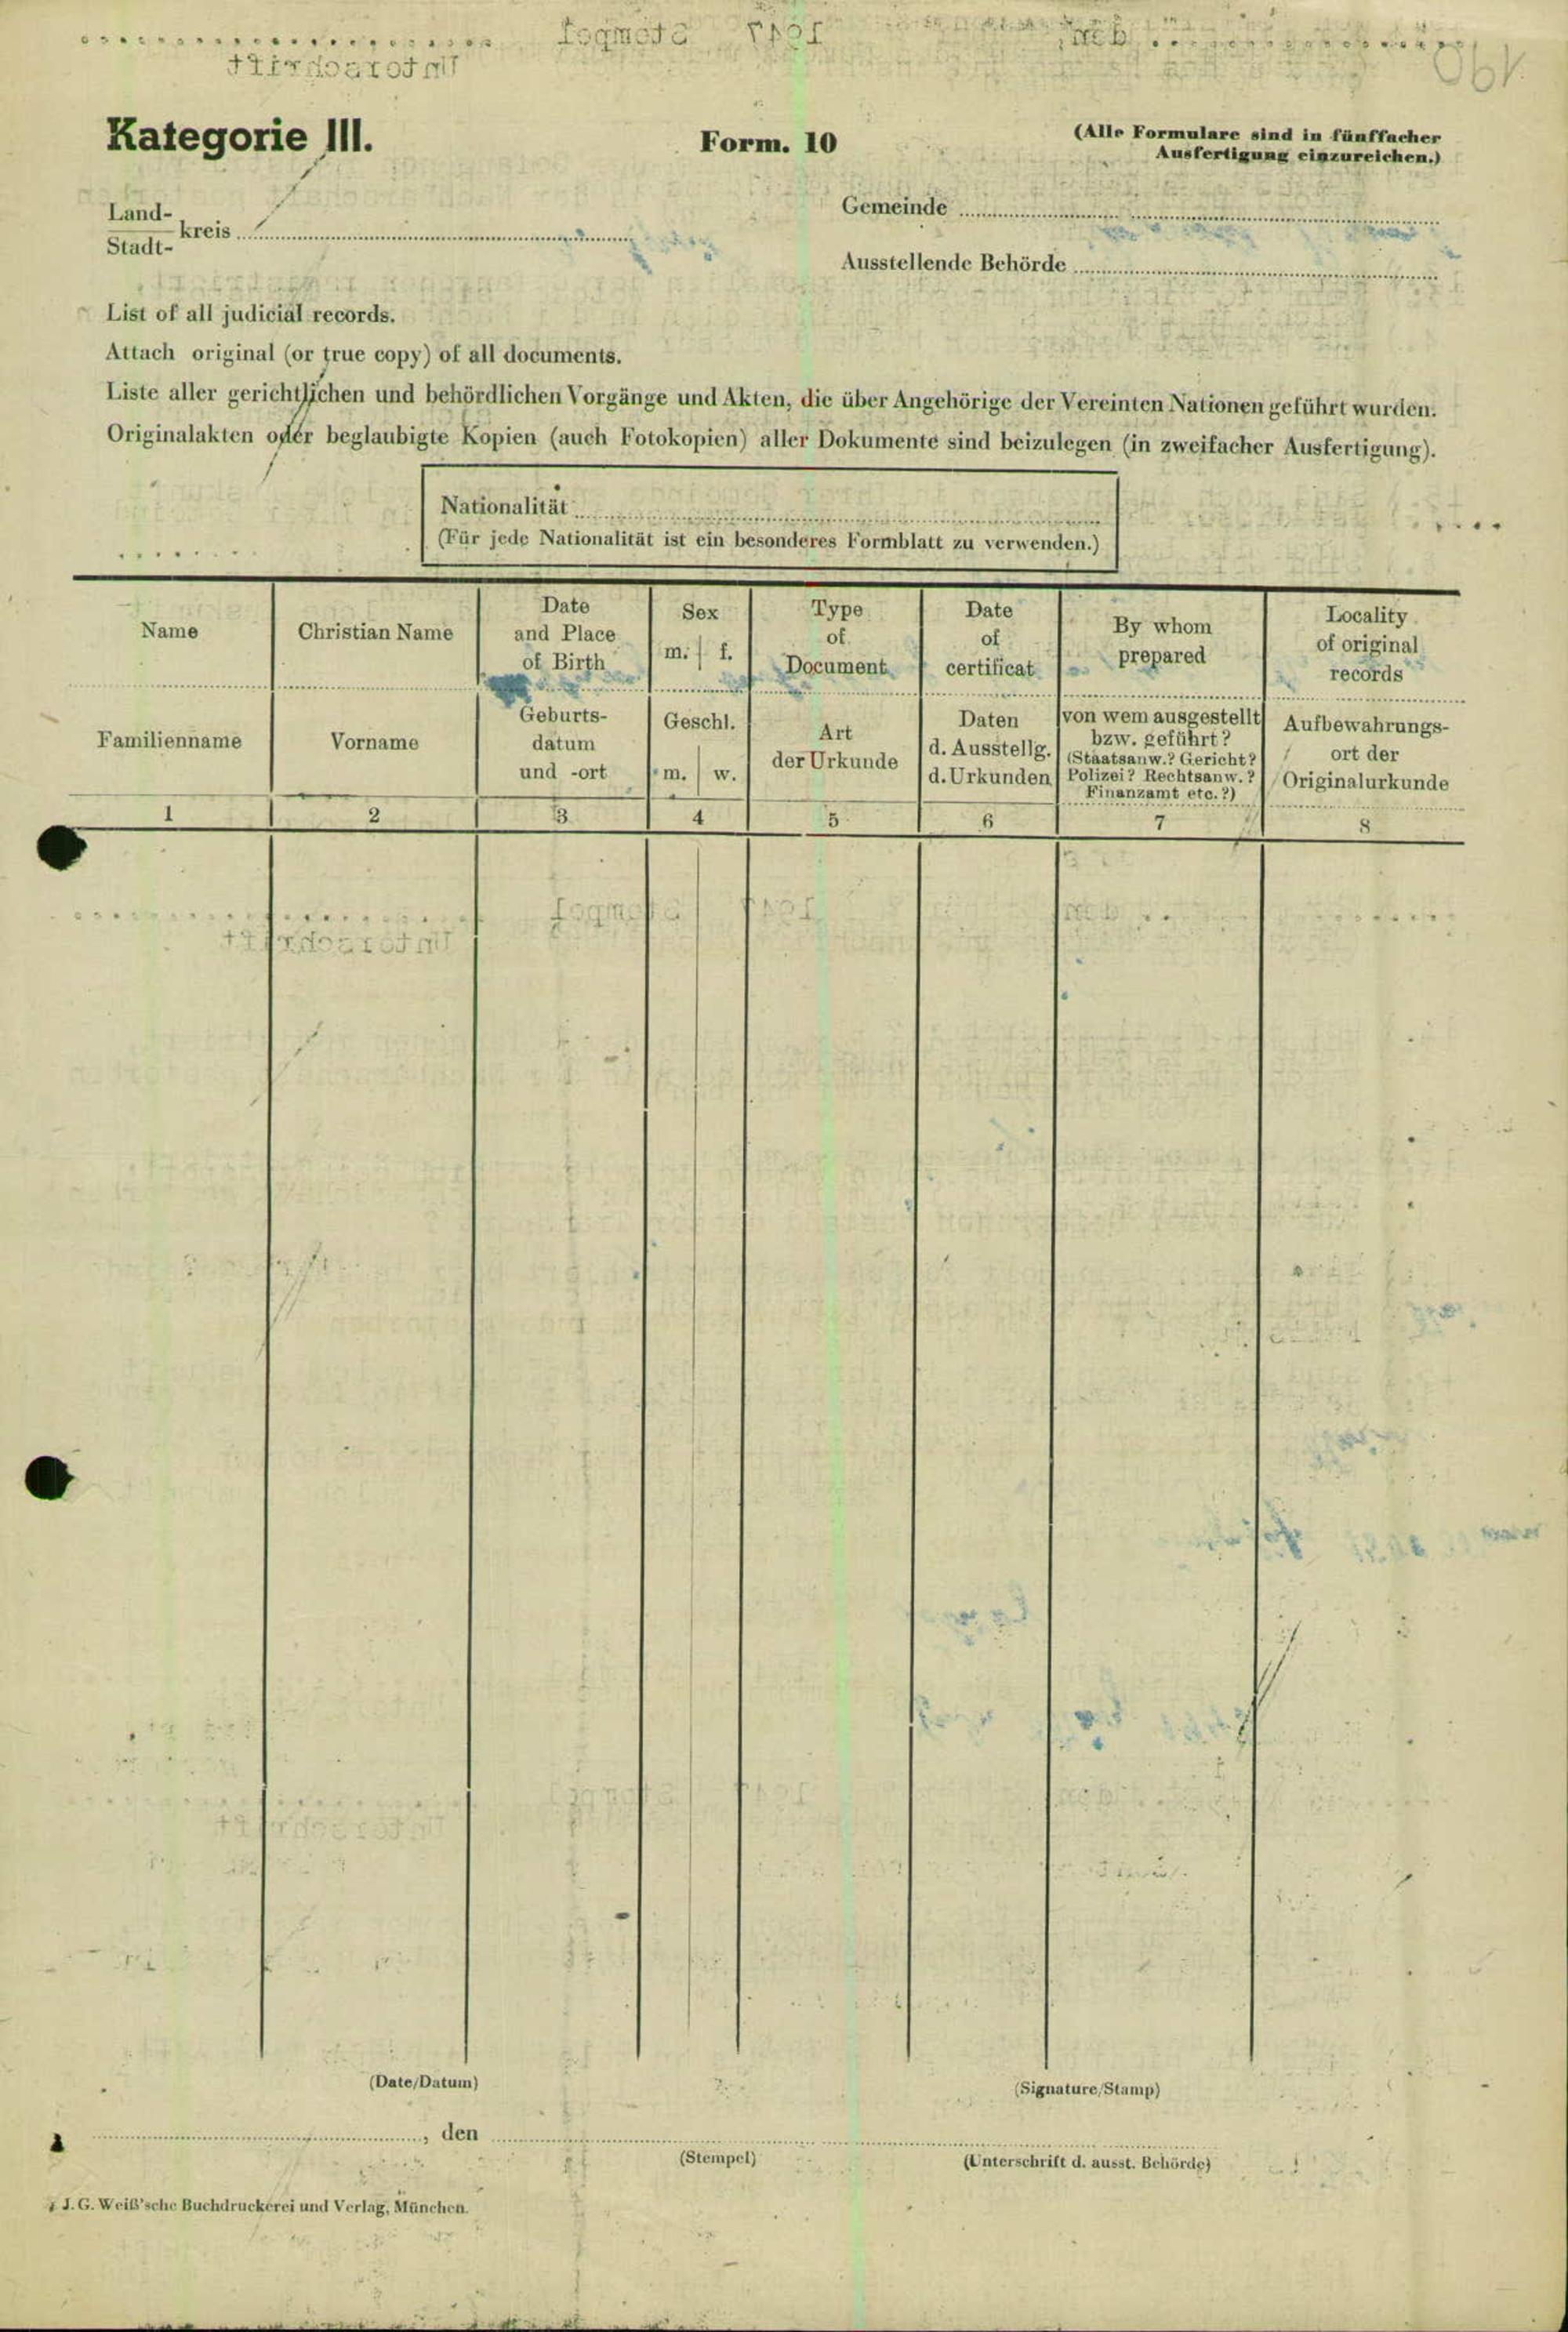 Kategorie III.
Form. 10
(Alle Formulare sind in fünffacher
Ausfertigung einzureichen.)
Land-
Stadt- kreis
Gemeinde
Ausstellende Behörde
List of all judicial records.
Attach original (or true copy) of all documents.
Liste aller gerichtlichen und behördlichen Vorgänge und Akten, die über Angehörige der Vereinten Nationen geführt wurden.
Originalakten oder beglaubigte Kopien (auch Fotokopien) aller Dokumente sind beizulegen (in zweifacher Ausfertigung).
Nationalität
(Für jede Nationalität ist ein besonderes Formblatt zu verwenden.)
Name
Christian Name
Date
and Place
of Birth
Sex
m. f.
Type
of
Document
Date
of
certificat
By whom
prepared
Locality
of original
records
Familienname
Vorname
Geburts-
datum
und -ort
Geschl.
m. w.
Art
der Urkunde
Daten
d. Ausstellg.
d. Urkunden
von wem ausgestellt
bzw. geführt?
(Staatsanw.? Gericht?
Polizei? Rechtsanw.?
Finanzamt etc.?)
Aufbewahrungs-
ort der
Originalurkunde
1 2 3 4 5 6 7 8
(Date/Datum)
(Signature/Stamp)
, den
(Stempel)
(Unterschrift d. ausst. Behörde)
J. G. Weiß'sche Buchdruckerei und Verlag, München.